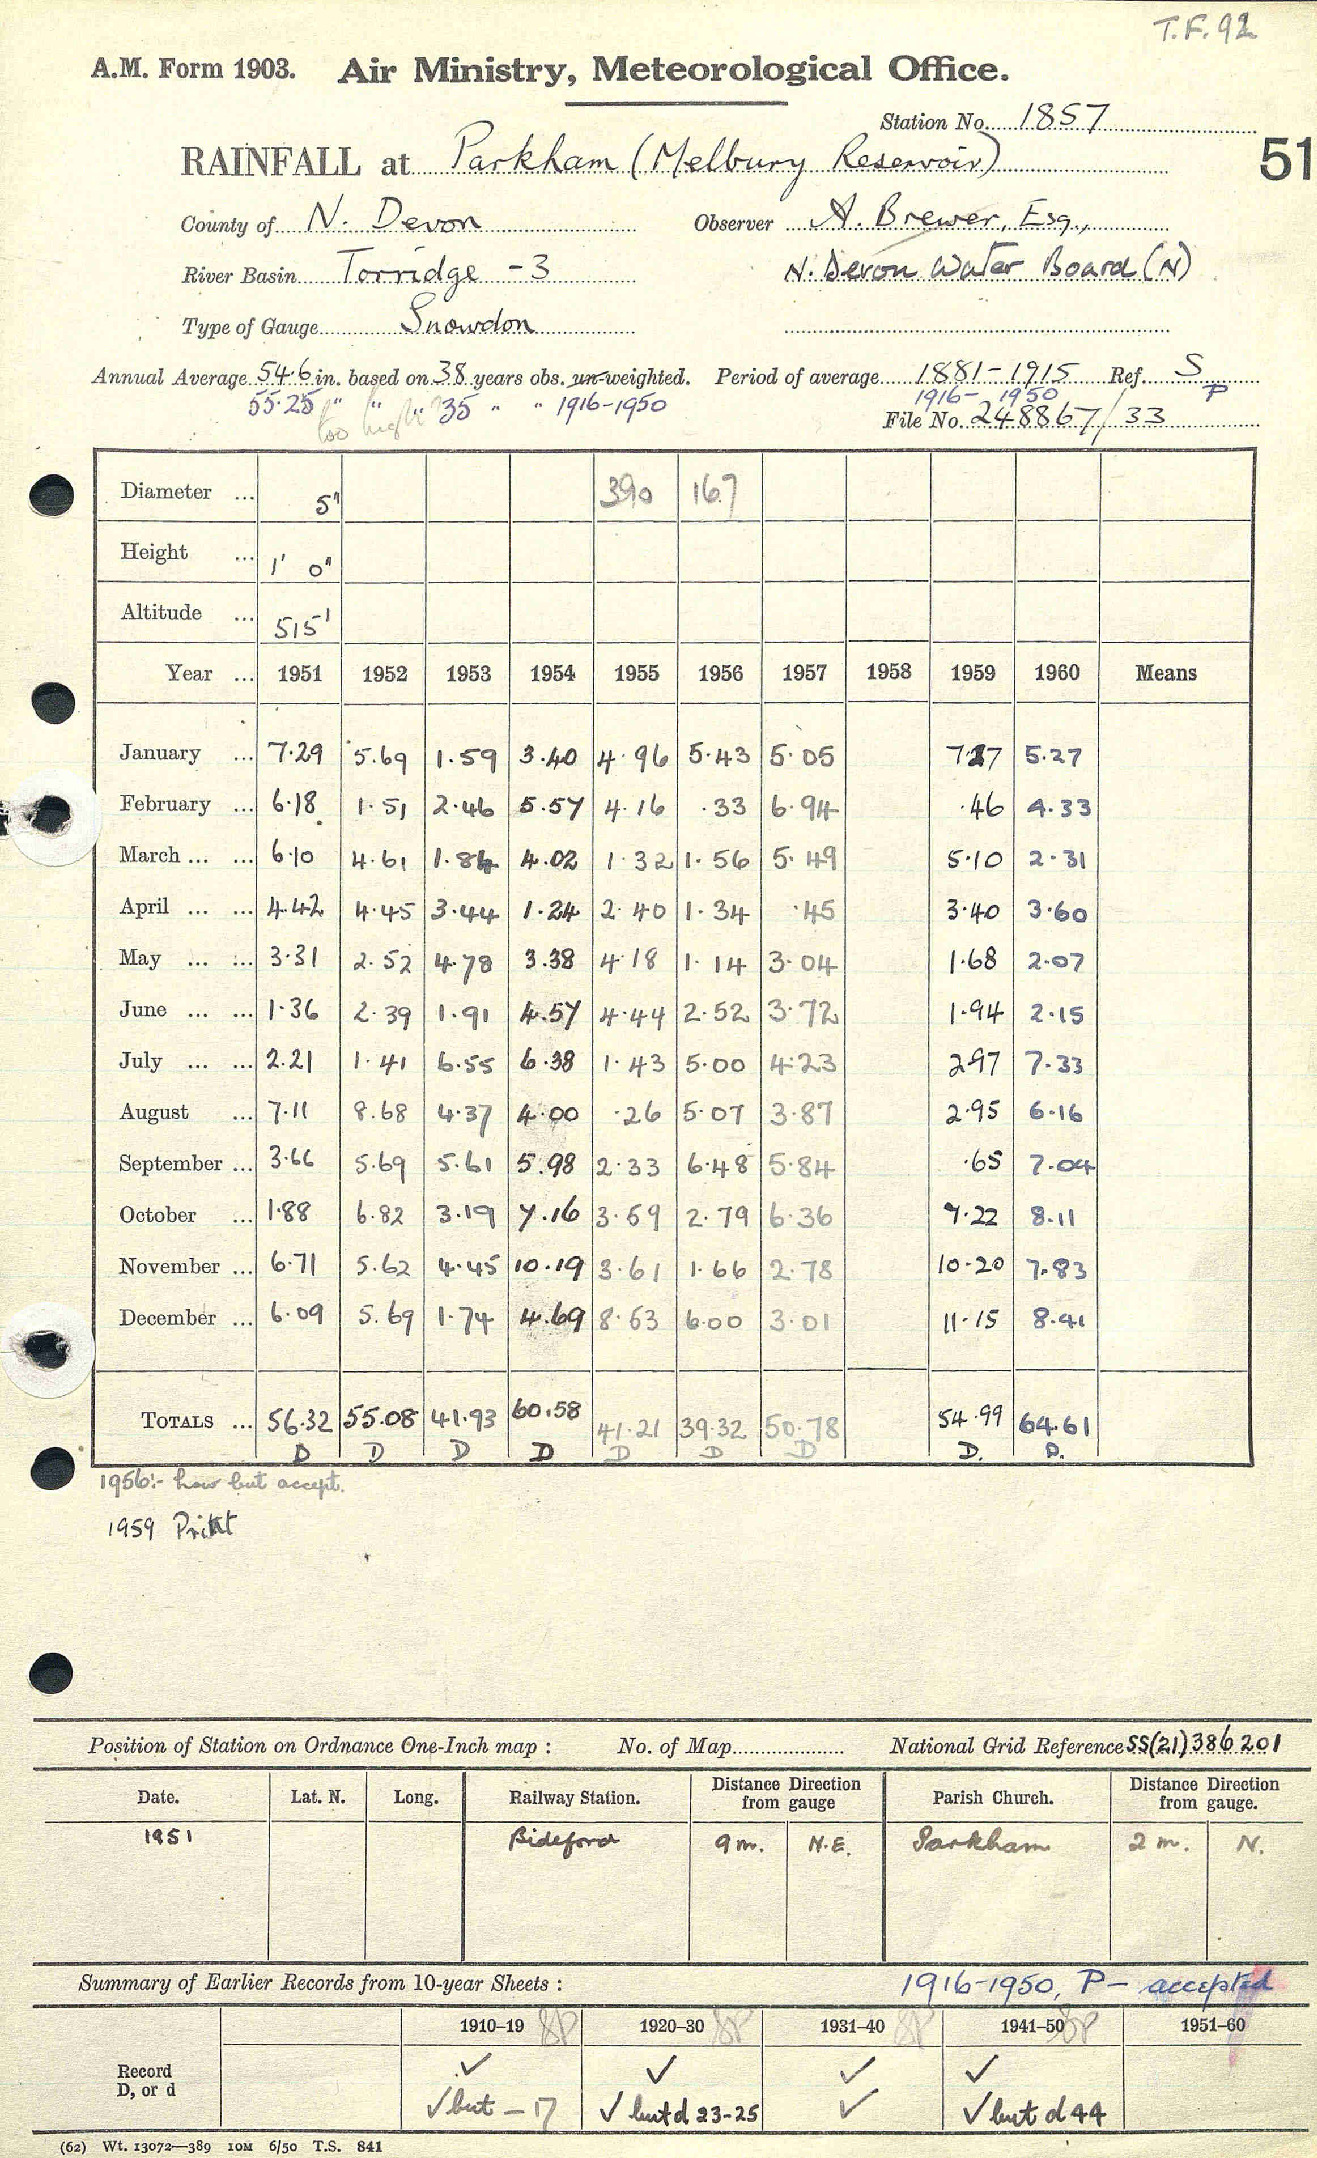 T.F. 92
A.M. Form 1903. Air Ministry, Meteorological Office.
Station No. 1857
RAINFALL at Parkham (Melbury Reservoir)
51
County of N. Devon Observer A. Brewer, Esq.,
River Basin Torridge - 3 N. Devon Water Board (N)
Type of Gauge Snowdon
Annual Average 54.6 in. based on 38 years obs. un-weighted. Period of average 1881-1915 Ref. S
55.25 " " " 35 " " 1916-1950 1916-1950 P
too high File No. 248867/33
Diameter ... 5" 390 167
Height ... 1' 0"
Altitude ... 515'
Year ... 1951 1952 1953 1954 1955 1956 1957 1958 1959 1960 Means
January ... 7.29 5.69 1.59 3.40 4.96 5.43 5.05 7.27 5.27
February ... 6.18 1.51 2.46 5.57 4.16 .33 6.94 .46 4.33
March ... ... 6.10 4.61 1.84 4.02 1.32 1.56 5.49 5.10 2.31
April ... ... 4.42 4.45 3.44 1.24 2.40 1.34 .45 3.40 3.60
May ... ... 3.31 2.52 4.78 3.38 4.18 1.14 3.04 1.68 2.07
June ... ... 1.36 2.39 1.91 4.57 4.44 2.52 3.72 1.94 2.15
July ... ... 2.21 1.41 6.55 6.38 1.43 5.00 4.23 2.97 7.33
August ... 7.11 8.68 4.37 4.00 .26 5.07 3.87 2.95 6.16
September ... 3.66 5.69 5.61 5.98 2.33 6.48 5.84 .65 7.04
October ... 1.88 6.82 3.19 7.16 3.59 2.79 6.36 7.22 8.11
November ... 6.71 5.62 4.45 10.19 3.61 1.66 2.78 10.20 7.83
December ... 6.09 5.69 1.74 4.69 8.53 6.00 3.01 11.15 8.41
TOTALS ... 56.32 55.08 41.93 60.58 41.21 39.32 50.78 54.99 64.61
D D D D D D D D. D.
1956:- low but accept.
1959 Print
Position of Station on Ordnance One-Inch map : No. of Map National Grid Reference SS(21)386201
Date. Lat. N. Long. Railway Station. Distance Direction from gauge Parish Church. Distance Direction from gauge.
1951 Bideford 9 m. N.E. Parkham 2 m. N.
Summary of Earlier Records from 10-year Sheets : 1916-1950, P - accepted
1910–19 1920–30 1931–40 1941–50 1951–60
Record ✓ ✓ ✓ ✓
D, or d ✓ but - 17 ✓ but d 23-25 ✓ ✓ but d 44
(62) Wt. 13072—389 10M 6/50 T.S. 841